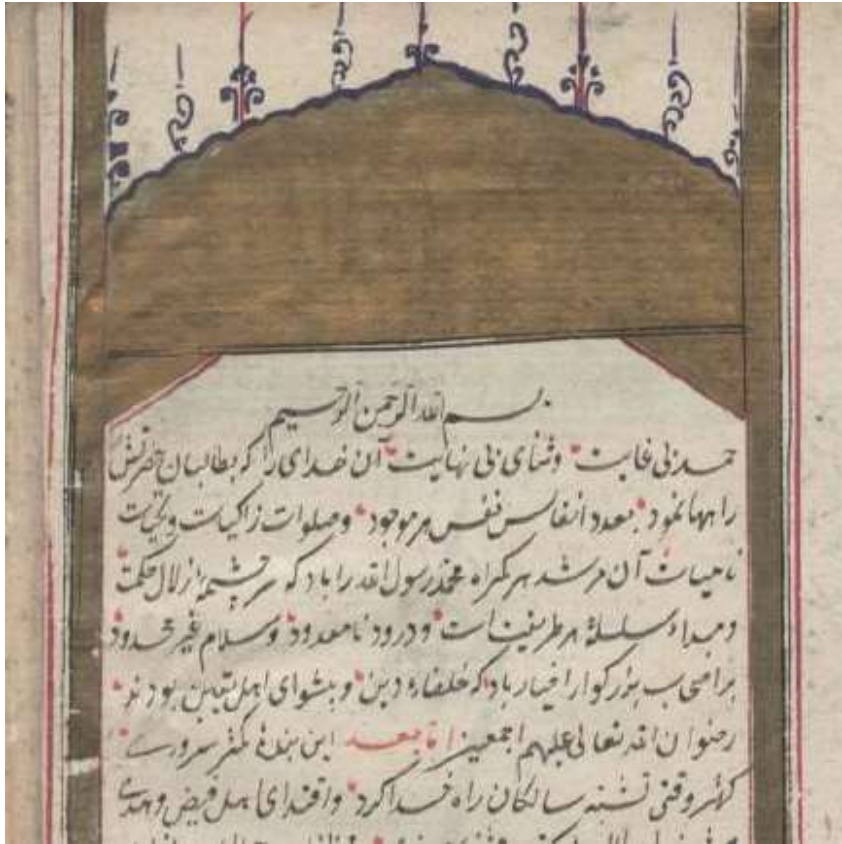 بسم الله الرحمن الرحیم
حمد بی غایت و ثنای بی نهایت آن خدای را که بطالبان حضرتش
راهها نمود بعدد انفاس نفس هر موجود و صلوات زاکیات و تحیات
نامیات آن مرشد هر گمراه محمد رسول الله را باد که سرچشمهٔ زلال حکمت
و مبداء سلسلهٔ هر طریقت است و درود نامعدود و سلام غیر محدود
بر اصحاب بزرکوار اخیار باد که خلفاء دین و پیشوای اهل یقین بودند
رضوان الله تعالی علیهم اجمعین اما بعد این بندهٔ کمتر سروری
که هر وقتی تشبه سالکان راه خدا کرد و اقتدای اهل فیض و هدی